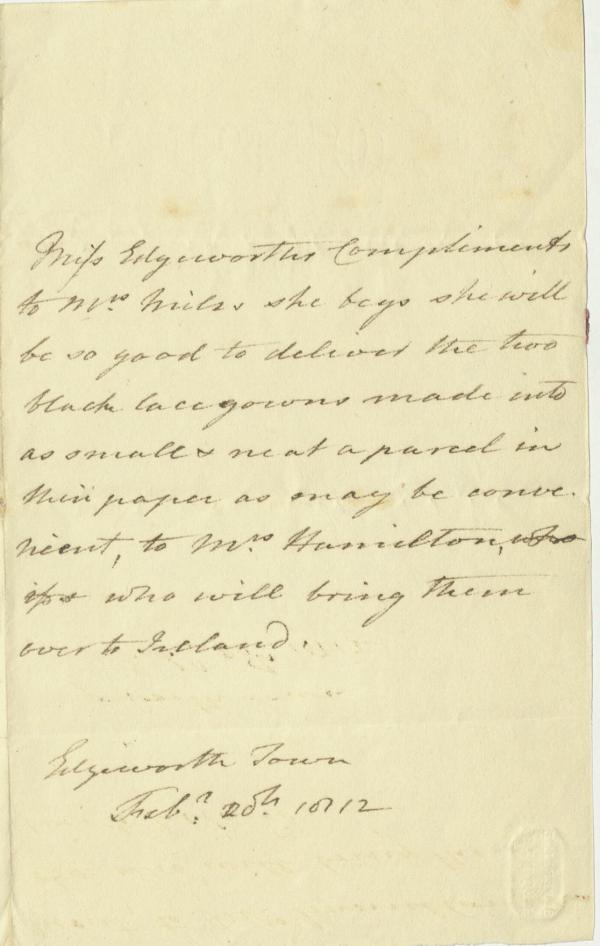 Miss Edgeworths Compliments
to Mrs. Miles she begs she will
be so good to deliver the two
black lace gowns made into
as small & neat a parcel in
thin paper as may be conve-
nient, to Mrs. Hamilton, who
who will bring them
over to Ireland.
Edgeworth Town
Feby. 20th 1812